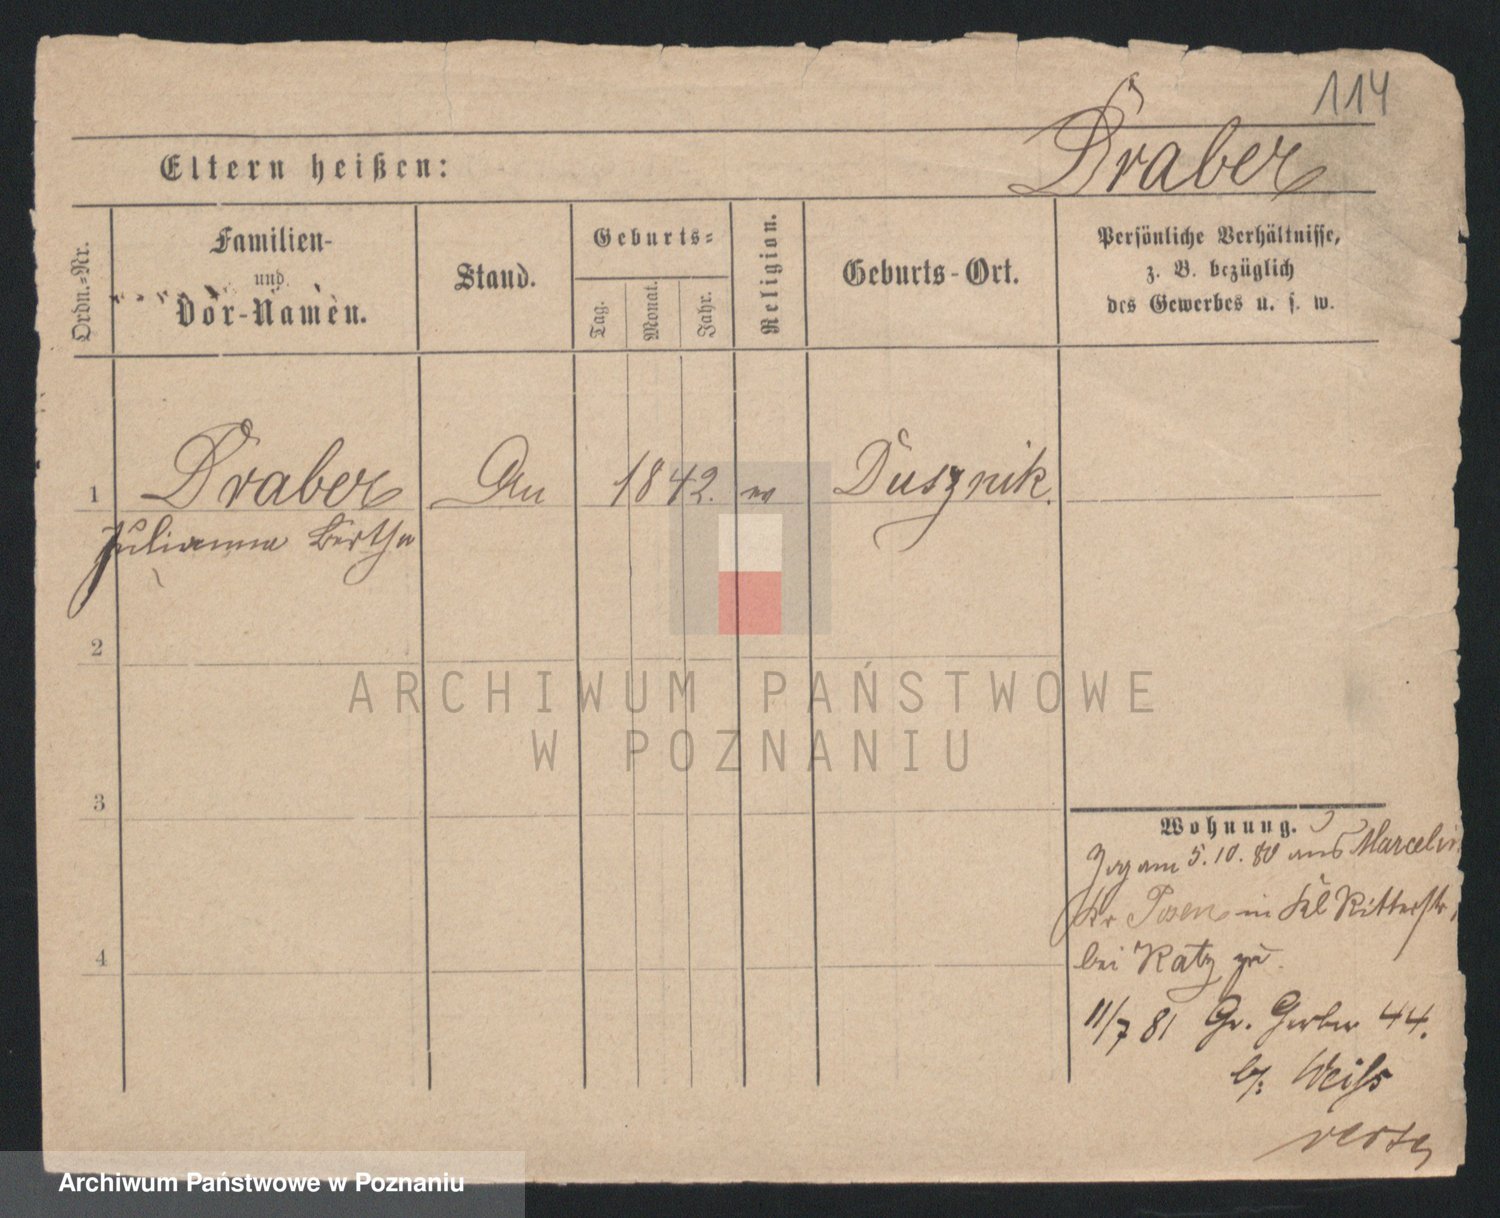 114
Draber
Eltern heißen:
Ordn.-Nr.
Familien-
und
Vor-Namen.
Stand.
Geburts-
Tag.
Monat.
Jahr.
Religion.
Geburts-Ort.
Persönliche Verhältnisse,
z. B. bezüglich
des Gewerbes u. s. w.
1 Draber 1842. Dusznik.
Julianna Bertha
2
3
4
Wohnung.
Zog am 5.10.80 aus Marcelin
Kr Posen in Kl Ritterstr
bei Katz zu
11/7 81 Gr. Gerber 44.
b/: Weiss
ARCHIWUM PAŃSTWOWE
W POZNANIU
Archiwum Państwowe w Poznaniu